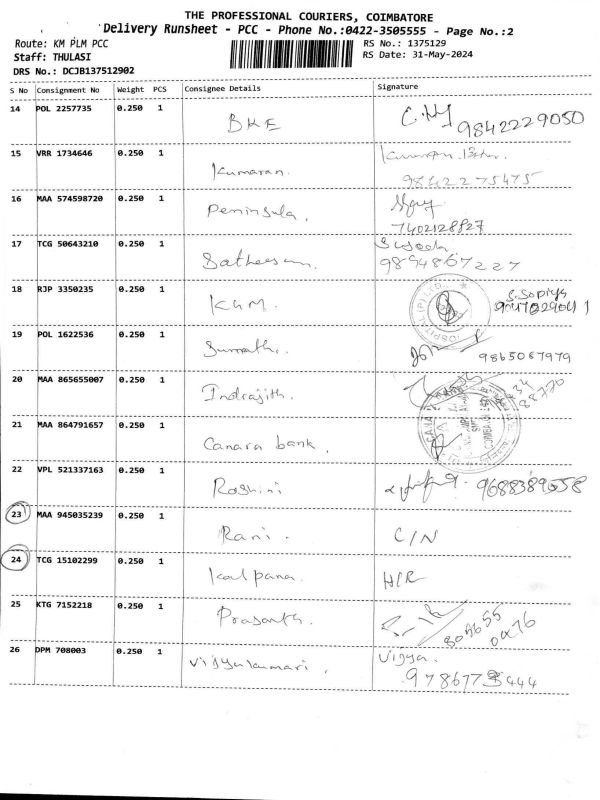 THE PROFESSIONAL COURIERS, COIMBATORE
Delivery Runsheet - PCC - Phone No.:0422-3505555 - Page No.:2
Route: KM PLM PCC
RS No.: 1375129
Staff: THULASI
RS Date: 31-May-2024
DRS No.: DCJB137512902
S No Consignment No Weight PCS Consignee Details Signature
14 POL 2257735 0.250 1 BKE
9842229050
15 VRR 1734646 0.250 1 Kumaran.
9842275475
16 MAA 574598720 0.250 1 Peninsula.
7402128827
17 TCG 50643210 0.250 1
9894867227
18 RJP 3350235 0.250 1 KGM. S. Sopiya
19 POL 1622536 0.250 1
9865067979
20 MAA 865655007 0.250 1 Indrajith.
21 MAA 864791657 0.250 1 Canara bank.
22 VPL 521337163 0.250 1 Roshini
9688389658
23 MAA 945035239 0.250 1 Rani. C/N
24 TCG 15102299 0.250 1 Kalpana.
25 KTG 7152218 0.250 1 Prasanth.
26 DPM 708003 0.250 1 Vijyakumari. Vijya.